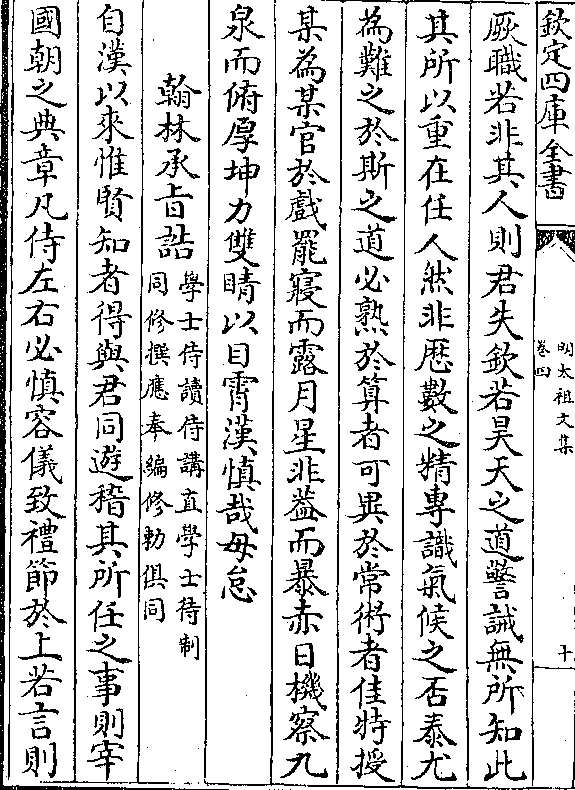 欽定四庫全書
明太祖文集
卷四
十
厥職若非其人則君失欽若昊天之道警誡無所知此
其所以重在任人然非厯數之精專識氣候之否泰尤
為難之於斯之道必熟於算者可異於常術者佳特授
某為某官於戲罷寢而露月星非葢而暴赤日機察九
泉而俯厚坤力雙睛以目霄漢慎哉毋怠
翰林承旨誥
學士侍讀侍講直學士待制
同修撰應奉編修勅俱同
自漢以來惟賢知者得與君同遊稽其所任之事則宰
國朝之典章凡侍左右必慎容儀致禮節於上若言則